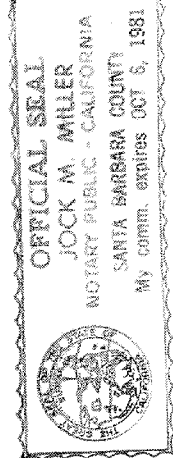 OFFICIAL SEAL
JOCK M. MILLER
NOTARY PUBLIC - CALIFORNIA
SANTA BARBARA COUNTY
My comm. expires OCT 6, 1981